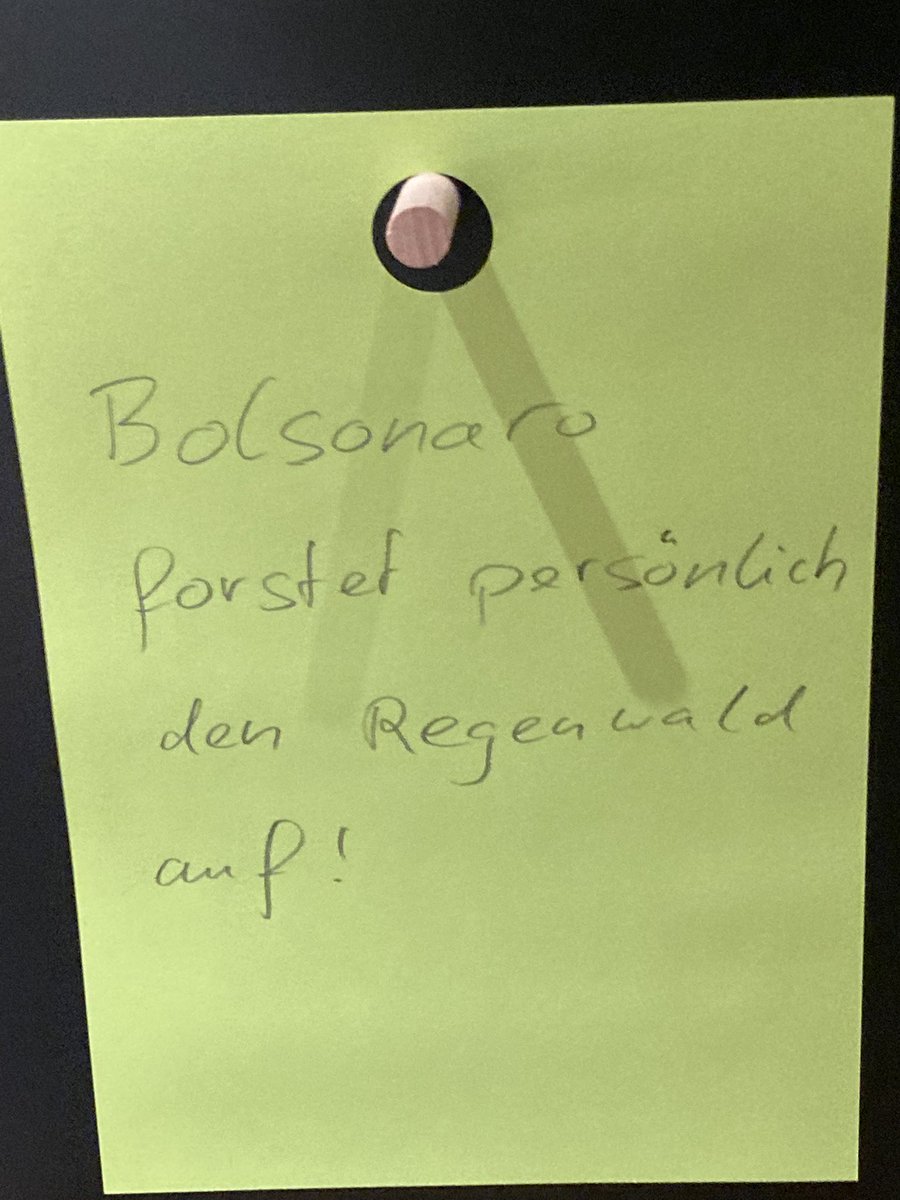 Bolsonaro
forstet persönlich
den Regenwald
auf!